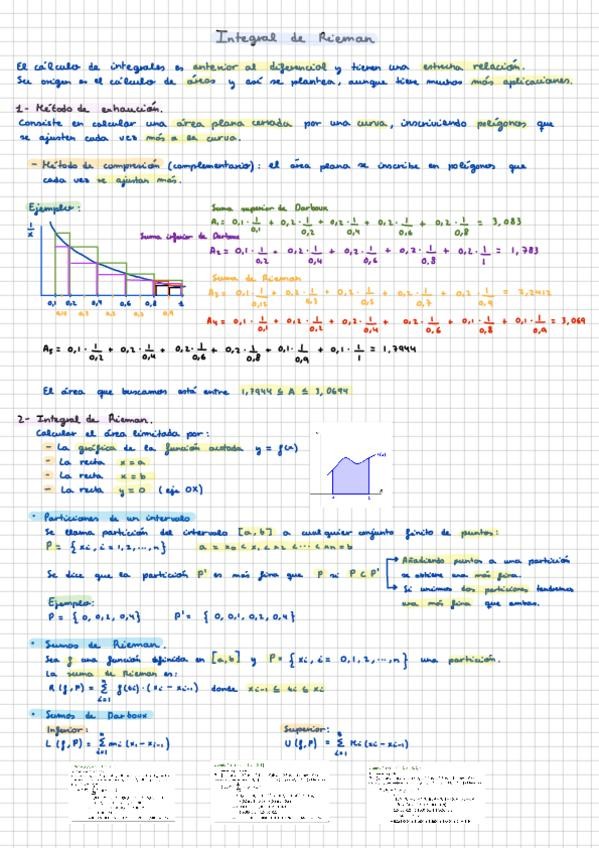 Integral de Rieman
El cálculo de integrales es anterior al diferencial y tienen una estrecha relación.
Su origen es el cálculo de áreas y así se plantea, aunque tiene muchas más aplicaciones.
1- Método de exhaución.
Consiste en calcular una área plana cerrada por una curva, inscriviendo polígonos que
se ajusten cada vez más a la curva.
- Método de compresión (complementario): el área plana se inscribe en polígonos que
cada vez se ajustan más.
Ejemplo:
1/x
0,1 0,2 0,4 0,6 0,8 1
0,9
Suma superior de Darboux
A₁ = 0,1 · 1/0,1 + 0,2 · 1/0,2 + 0,2 · 1/0,4 + 0,2 · 1/0,6 + 0,2 · 1/0,8 = 3,083
Suma inferior de Darboux
A₂ = 0,1 · 1/0,2 + 0,2 · 1/0,4 + 0,2 · 1/0,6 + 0,2 · 1/0,8 + 0,2 · 1/1 = 1,783
Suma de Rieman
A₃ = 0,1 · 1/0,15 + 0,2 · 1/0,3 + 0,2 · 1/0,5 + 0,2 · 1/0,7 + 0,2 · 1/0,9 = 2,2412
A₄ = 0,1 · 1/0,1 + 0,2 · 1/0,2 + 0,2 · 1/0,4 + 0,2 · 1/0,6 + 0,1 · 1/0,8 + 0,1 · 1/0,9 = 3,069
A₅ = 0,1 · 1/0,2 + 0,2 · 1/0,4 + 0,2 · 1/0,6 + 0,2 · 1/0,8 + 0,1 · 1/0,9 + 0,1 · 1/1 = 1,7944
El área que buscamos está entre 1,7944 ≤ A ≤ 3,0694
2- Integral de Rieman.
Calcular el área limitada por:
- La gráfica de la función acotada y = f(x)
- La recta x = a
- La recta x = b
- La recta y = 0 (eje OX)
• Particiones de un intervalo
Se llama partición del intervalo [a, b] a cualquier conjunto finito de puntos:
P = { xi, i = 1, 2, ..., n} a = x₀ < x₁ < x₂ < ... < xn = b
Se dice que la partición P' es más fina que P si P ⊂ P'
Añadiendo puntos a una partición
se obtiene una más fina.
Si unimos dos particiones tendremos
una más fina que ambas.
Ejemplo:
P = { 0, 0,2, 0,4} P' = { 0, 0,1, 0,2, 0,4}
• Sumas de Rieman.
Sea f una función definida en [a, b] y P = { xi, i = 0, 1, 2, ..., n} una partición.
La suma de Rieman es:
R (f, P) = n Σ i=1 f(ti) · (xi - xi-1) donde xi-1 ≤ ti ≤ xi
• Sumas de Darboux
Inferior: Superior:
L (f, P) = n Σ i=1 mi (xi - xi-1) U (f, P) = n Σ i=1 Mi (xi - xi-1)